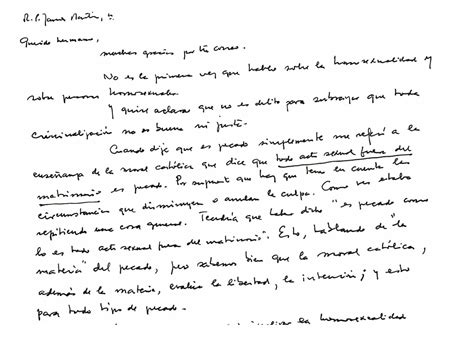 R.P. James Martin, sj.
Querido hermano,
muchas gracias por tu correo.
No es la primera vez que hablo sobre la homosexualidad y
sobre personas homosexuales.
Y quise aclarar que no es delito para subrayar que toda
criminalización no es buena ni justa.
Cuando dije que es pecado simplemente me referí a la
enseñanza de la moral católica que dice que todo acto sexual fuera del
matrimonio es pecado. Por supuesto que hay que tener en cuenta las
circunstancias que disminuyen o anulan la culpa. Como ves estaba
repitiendo una cosa general. Tendría que haber dicho "es pecado como
lo es todo acto sexual fuera del matrimonio". Esto, hablando de "la
materia" del pecado, pero sabemos bien que la moral católica,
además de la materia, evalúa la libertad, la intención; y esto
para todo tipo de pecado.
la homosexualidad